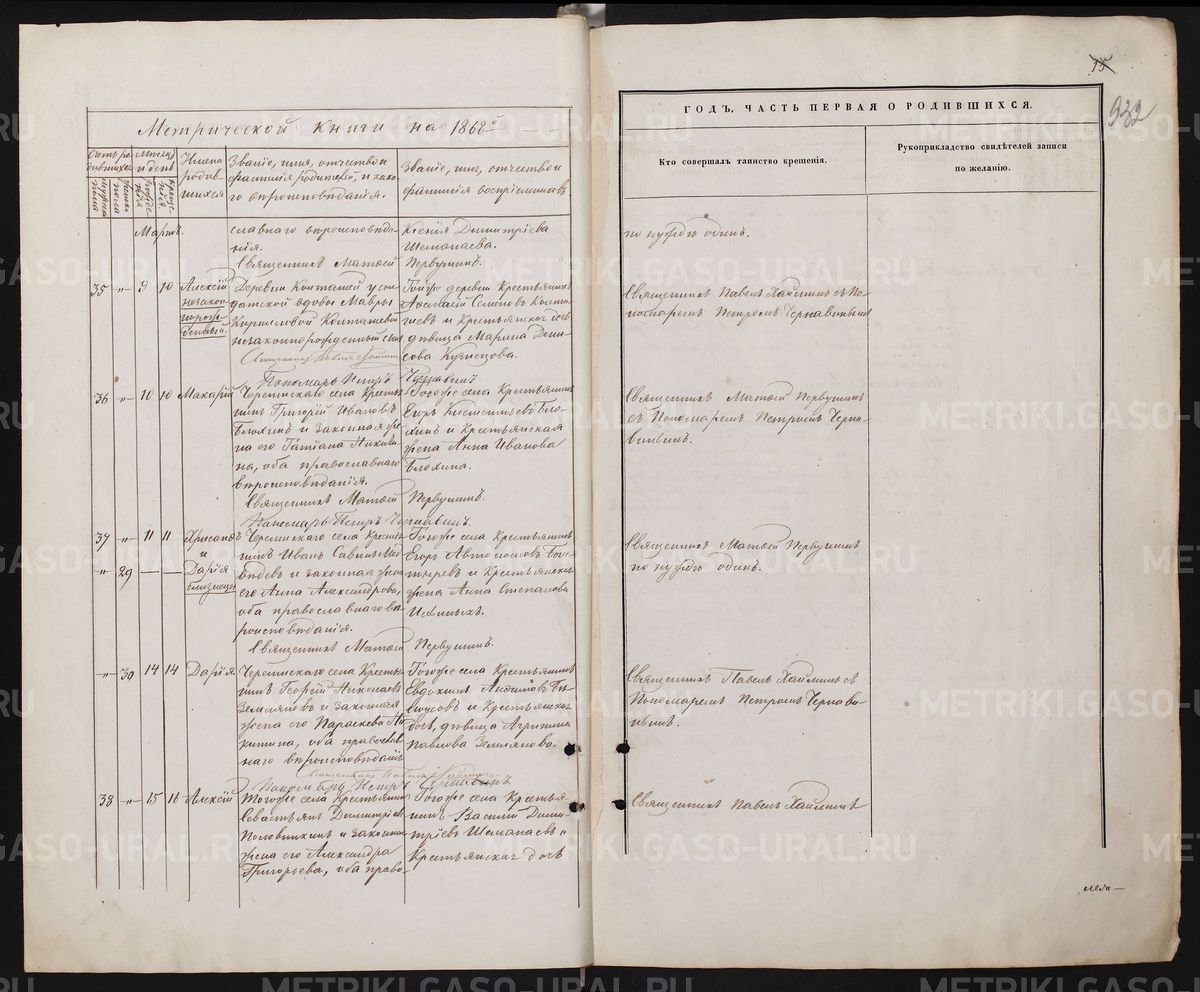 Метрической книги на 1868й
Счетъ ро-
дившихся
Мѣсяцъ
и день
Имена
родив-
шихся
Званіе, имя, отчество и
фамилія родителей, и како-
го вѣроисповѣданія.
Званіе, имя, отчество и
фамилія воспріемниковъ
Мартъ.
славнаго вѣроисповѣда-
нія.
Священникъ Матѳей Первушинъ.
Ксенія Димитріева
Шемпаева.
35 „ 9 10 Алексій
незакон-
норож-
денный.
Деревни Колташей у сол-
датской вдовы Мавры
Кирилловой Колташевой
незаконнорожденный сынъ
Пономарь Петръ Чернавинъ
Тойже деревни Крестьянинъ
Аѳанасій Семеновъ Колта-
шевъ и Крестьянская дочь
дѣвица Марина Дени-
сова Кузнецова.
36 „ 10 10 Макарій
Черемискаго села Кресть-
янинъ Григорій Ивановъ
Блохинъ и законная же-
на его Татіана Никити-
на, оба православнаго
вѣроисповѣданія.
Священникъ Матѳей Первушинъ.
Пономарь Петръ Чернавинъ.
Тогоже села Крестьянинъ
Егоръ Климентьевъ Бло-
хинъ и Крестьянская
жена Анна Иванова
Блохина.
37 „ 11 11 Хрисанѳъ
и
„ 29 — — Дарія
близнецы
Черемискаго села Кресть-
янинъ Иванъ Савинъ Мед-
вѣдевъ и законная жена
его Анна Александрова,
оба православнаго вѣ-
роисповѣданія.
Священникъ Матѳей Первушинъ.
Тогоже села Крестьянинъ
Егоръ Автономовъ Бога-
тыревъ и Крестьянская
жена Анна Степанова
Ильиныхъ.
„ 30 14 14 Дарія
Черемискаго села Кресть-
янинъ Георгій Николаевъ
Земляновъ и законная
жена его Параскева Ни-
китина, оба православ-
наго вѣроисповѣданія
Пономарь Петръ Чернавинъ.
Тогоже села Крестьянинъ
Евдокимъ Анѳимовъ Бѣ-
лоусовъ и Крестьянская
дочь, дѣвица Агрипина
Павлова Землянова.
38 „ 15 16 Алексій
Тогоже села Крестьянинъ
Севастьянъ Димитріевъ
Половинкинъ и законная
жена его Александра
Григорьева, оба право-
Тогоже села Крестья-
нинъ Василій Дими-
тріевъ Шемпаевъ и
Крестьянская дочь
15
932
ГОДЪ. ЧАСТЬ ПЕРВАЯ О РОДИВШИХСЯ.
Кто совершалъ таинство крещенія.
Рукоприкладство свидѣтелей записи
по желанію.
по нуждѣ одинъ.
Священникъ Павелъ Хайминъ съ По-
номаремъ Петромъ Чернавинымъ
Священникъ Матѳей Первушинъ
съ Пономаремъ Петромъ Черна-
винымъ.
Священникъ Матѳей Первушинъ
по нуждѣ одинъ.
Священникъ Павелъ Хайминъ съ
Пономаремъ Петромъ Чернави-
нымъ.
Священникъ Павелъ Хайминъ
METRIKI.GASO-URAL.RU